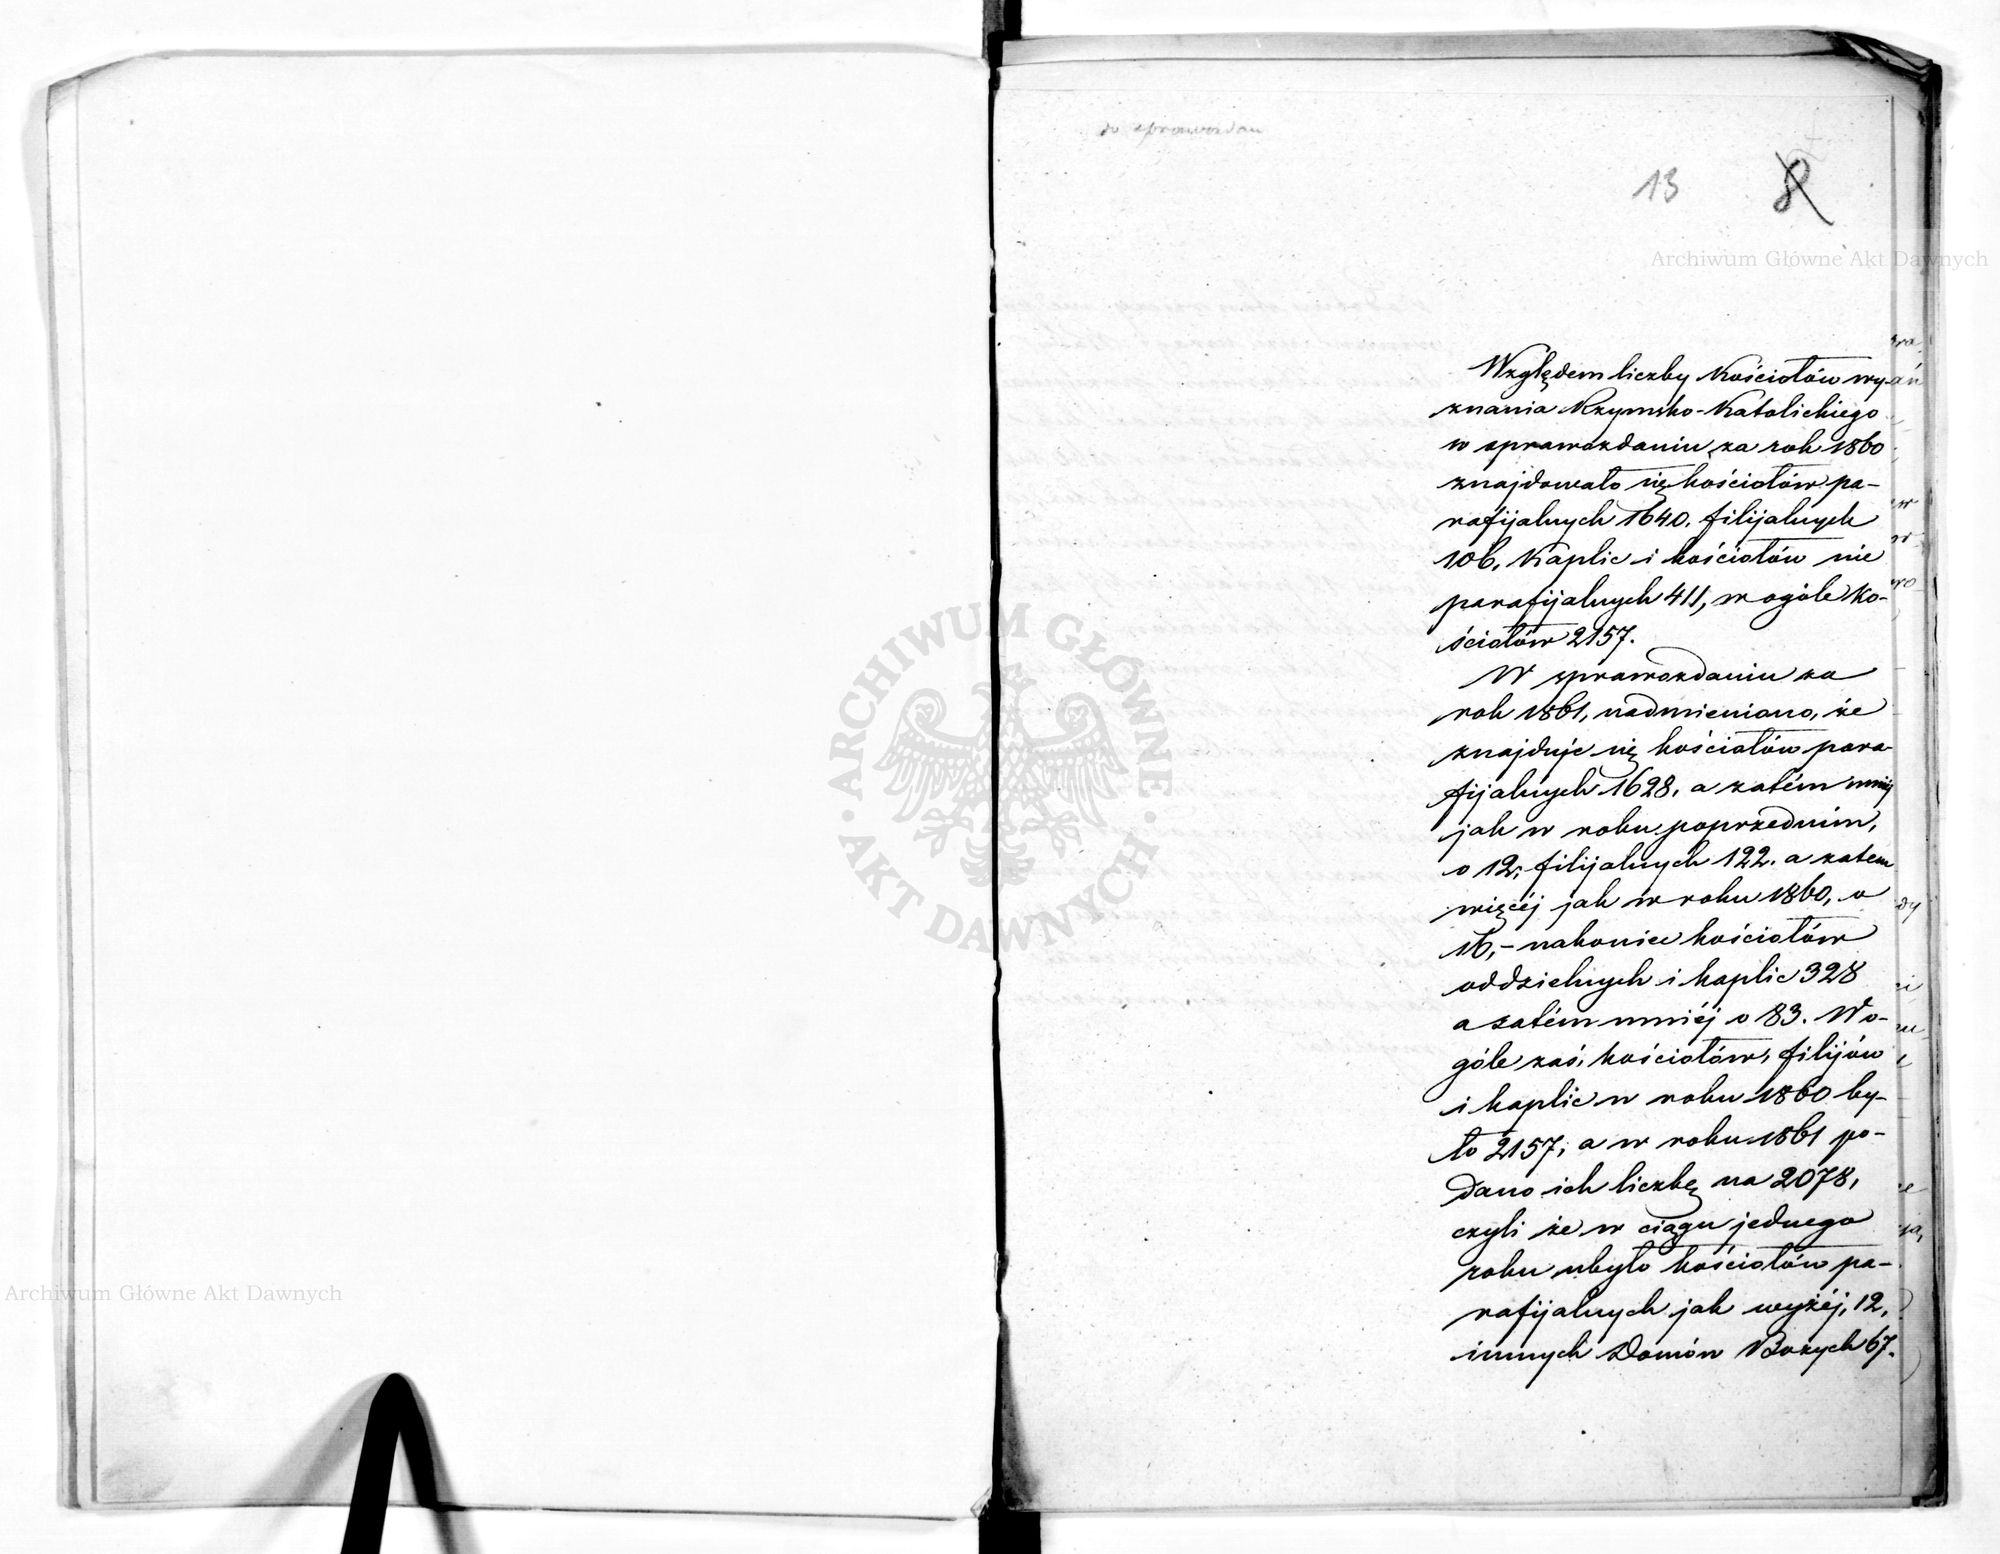 do sprawozdan
13 8
Archiwum Główne Akt Dawnych
Względem liczby Kościołów wy-
znania Rzymsko-Katolickiego
w sprawozdaniu za rok 1860
znajdowało się kościołów pa-
rafijalnych 1640. filijalnych
106, Kaplic i kościołów nie
parafijalnych 411, w ogóle Ko-
ściołów 2157.
W sprawozdaniu za
rok 1861, nadmieniano, że
znajduje się kościołów para-
fijalnych 1628, a zatém mniéj
jak w roku poprzednim,
o 12, filijalnych 122. a zatem
więcéj jak w roku 1860, o
16, - nakoniec kościołów
oddzielnych i kaplic 328
a zatém mniéj o 83. Wo-
góle zaś, kościołów, filijów
i kaplic w roku 1860 by-
ło 2157, a w roku 1861 po-
dano ich liczbę na 2078,
czyli że w ciągu jednego
roku ubyło kościołów pa-
rafijalnych jak wyżéj, 12,
innych Domów Bożych 67.
ARCHIWUM GŁÓWNE AKT DAWNYCH
Archiwum Główne Akt Dawnych